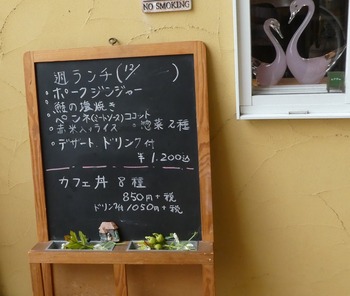 NO SMOKING
週ランチ(12/ )
・ポークジンジャー
・鮭の塩焼き
・ペンネ(ミートソース)ココット
・赤米入りライス ・惣菜2種
・デザート、ドリンク付
¥1.200込
カフェ丼 8種
850円+税
ドリンク付1050円+税